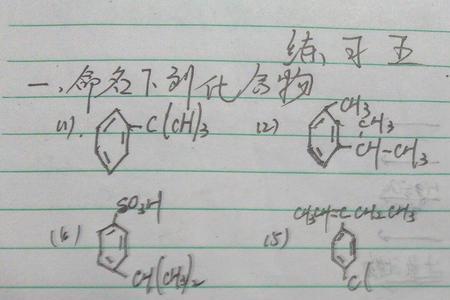 练习五
一、命名下列化合物
(1). C(CH)3
(2) CH3 CH3 CH-CH3
(4) SO3H CH(CH3)2
(5) CH3CH=C CH2CH3 Cl